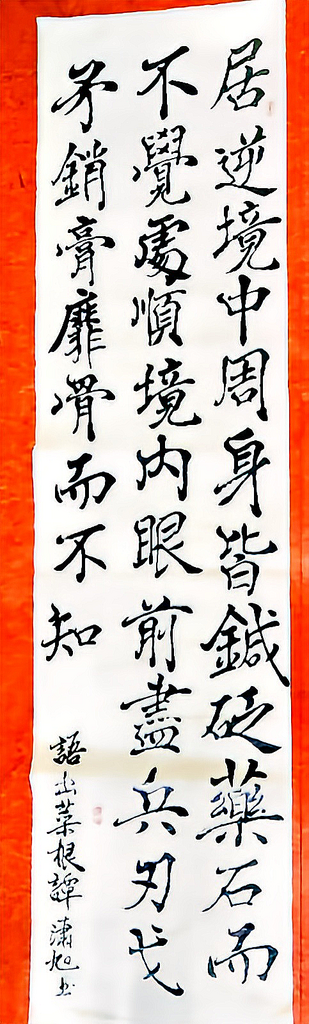 居逆境中周身皆鍼砭藥石而
不覺處順境內眼前盡兵刃戈
矛銷膏靡骨而不知
語出菜根譚 瀟旭书